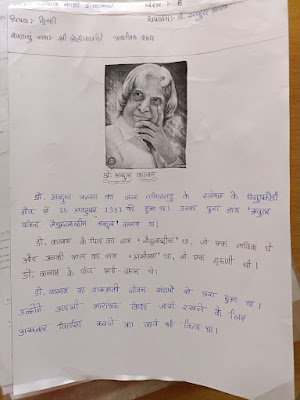 विषय:- हिन्दी
डॉ. अब्दुल कलाम
डॉ. अब्दुल कलाम का जन्म तमिलनाडु के रामेश्वरम के धनुषकोडी
गाँव में 15 अक्टूबर 1931 को हुआ था। उनका पुरा नाम 'अबुल
पकिर जैनुलाब्दीन अब्दुल' कलाम था।
डॉ. कलाम के पिता का नाम 'जैनुलाब्दीन' था, जो एक नाविक थे
और उनकी माता का नाम 'अशीमा' था, जो एक गृहणी थी।
डॉ. कलाम के पाँच भाई-बहन थे।
डॉ. कलाम का शुरुआती जीवन संघर्षों से भरा हुआ था।
उन्होंने अपनी आरंभिक शिक्षा जारी रखने के लिए
अखबार वितरित करने का कार्य भी किया था।